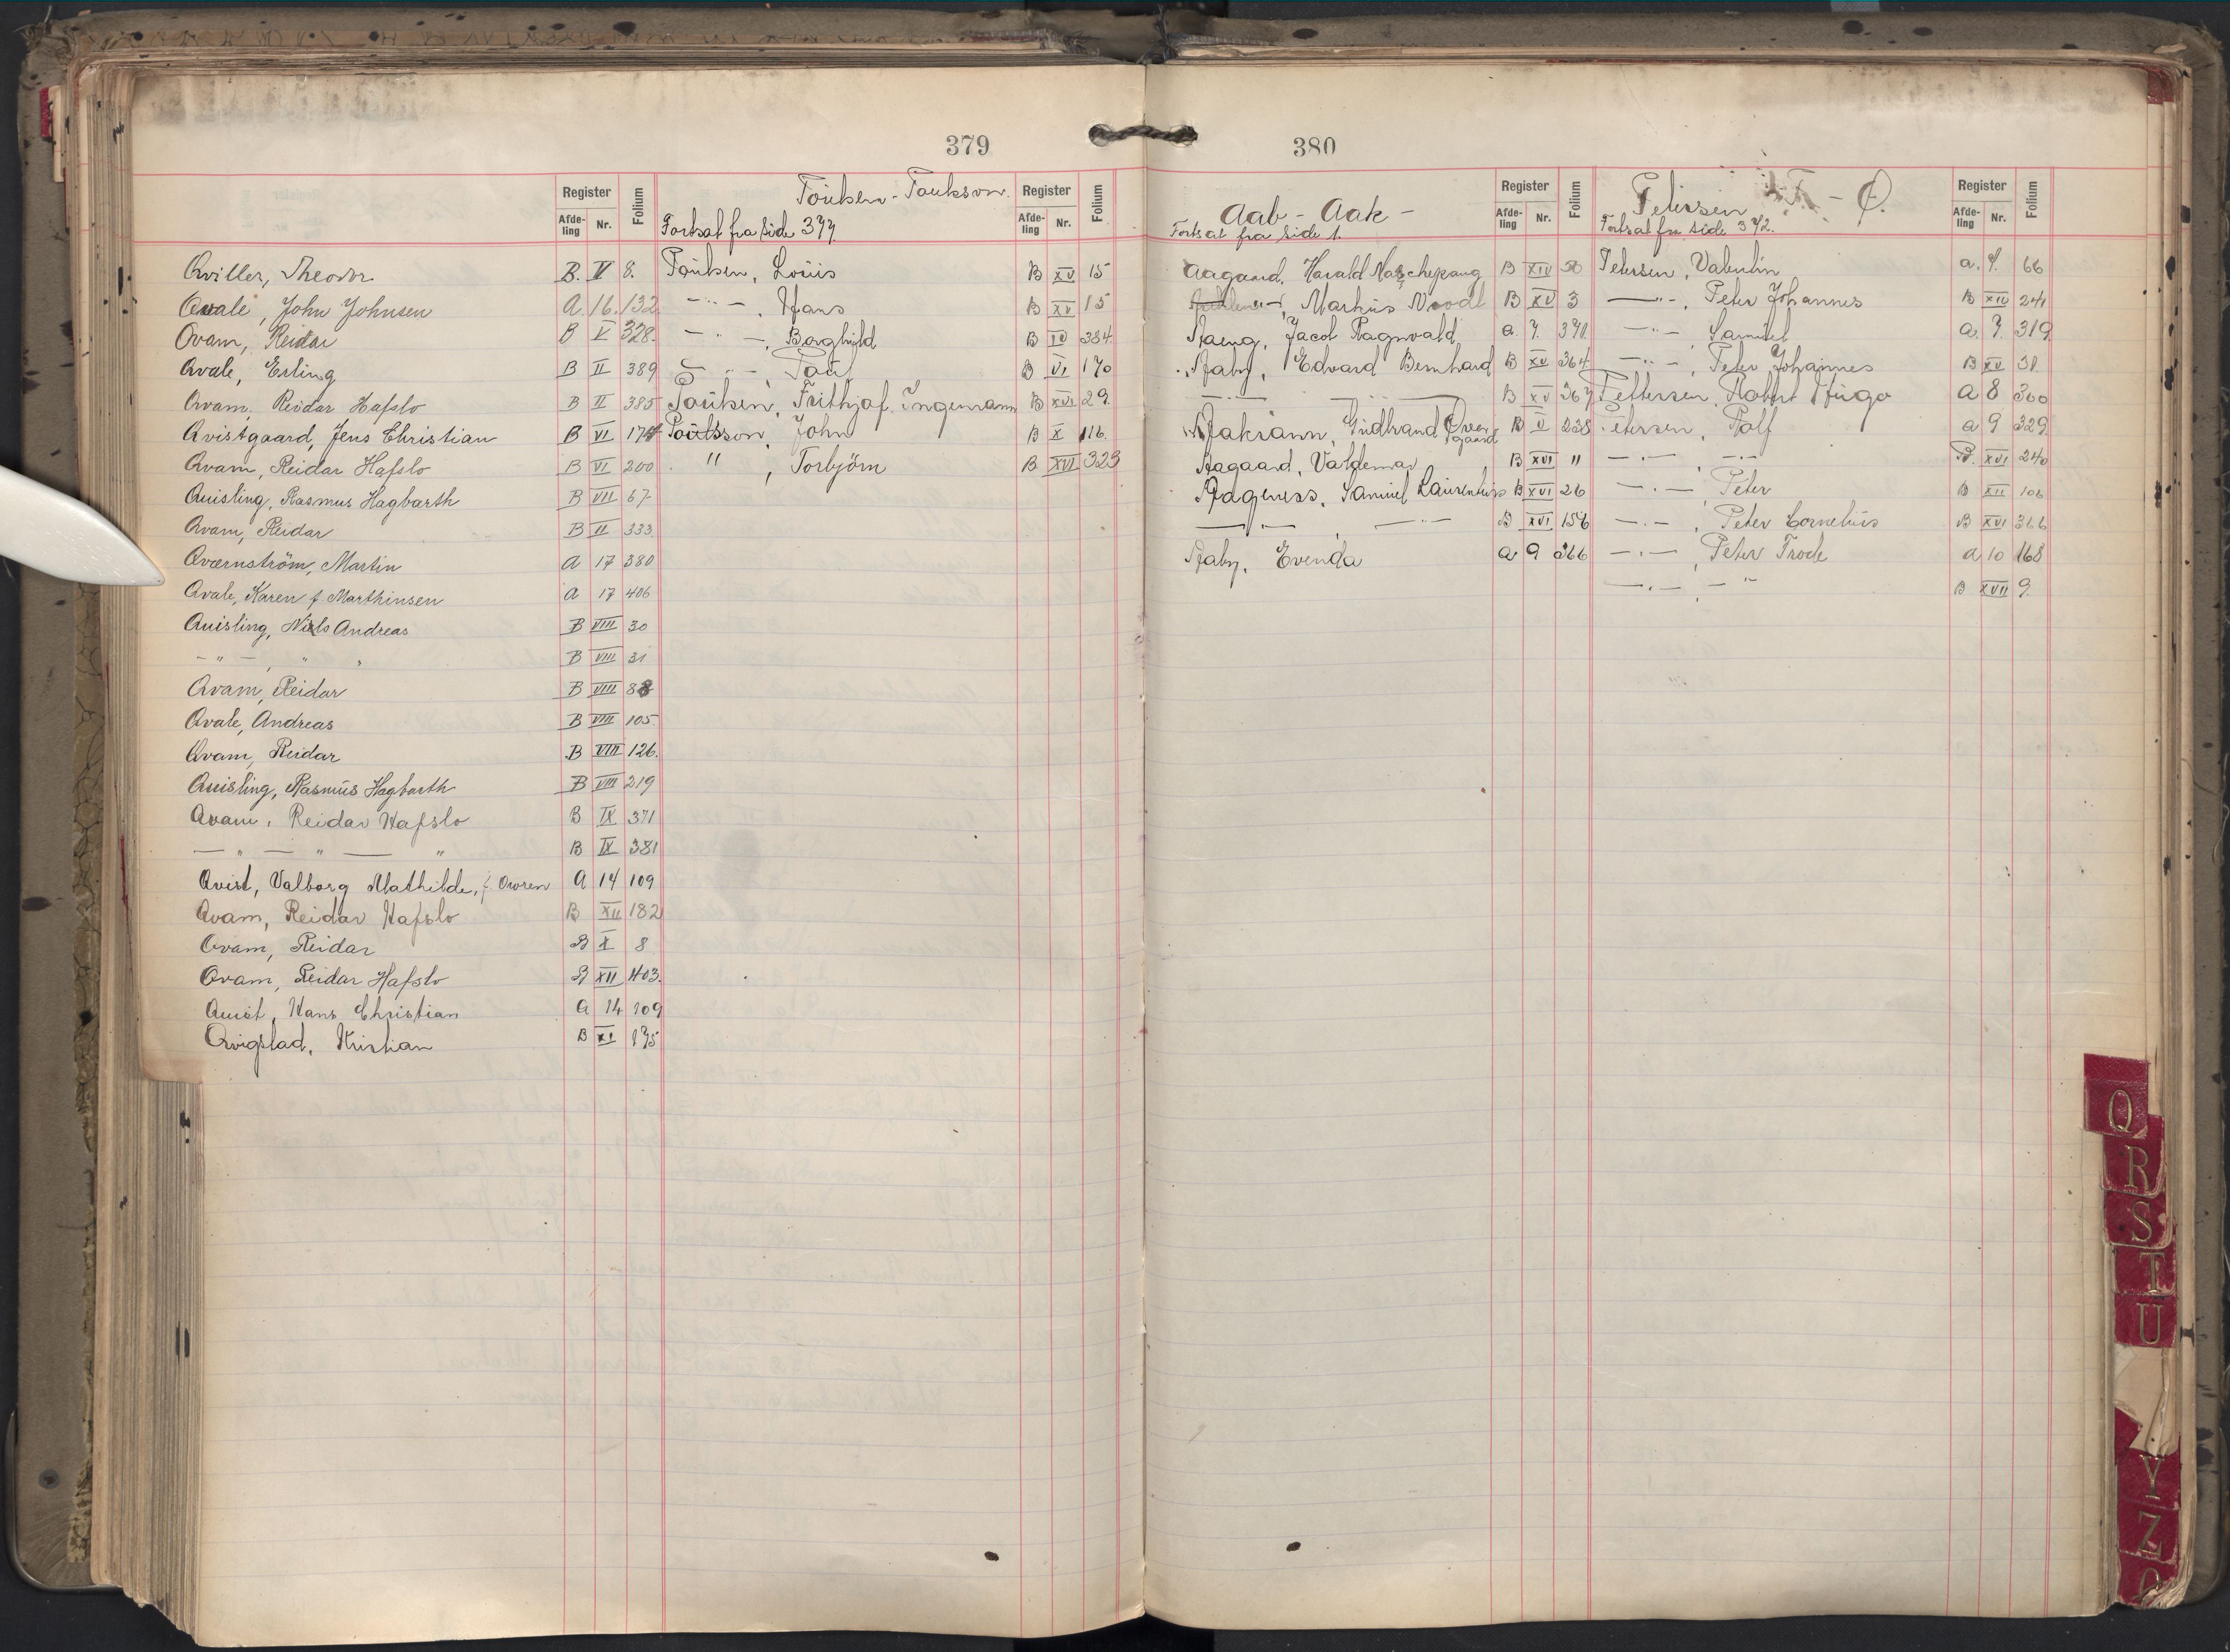 379
Register
Afde-
ling
Nr.
Folium
Qviller, Theodor B. V 8.
Qvale, John Johnsen A. 16. 132
Qvam, Reidar B V 328.
Qvale, Erling B II 389
Qvam, Reidar Hafslo B II 385
Qvistgaard, Jens Christian B VI 174
Qvam, Reidar Hafslo B VI 200
Quisling, Rasmus Hagbarth B VII 67
Qvam, Reidar B II 333
Qværnström, Martin A 17 380
Qvale, Karen f. Marthinsen A 17 406
Quisling, Niels Andreas B VIII 30
— " — , " " B VIII 31
Qvam, Reidar B VIII 88
Qvale, Andreas B VIII 105
Qvam, Reidar B VIII 126.
Quisling, Rasmus Hagbarth B VIII 219
Qvam, Reidar Hafslo B IX 371
— " — " — " B IX 381
Qvist, Valborg Mathilde, f. Owren A 14 109
Qvam, Reidar Hafslo B XII 182
Qvam, Reidar B X 8
Qvam, Reidar Hafslo B XII 403.
Quist, Hans Christian A 14 109
Qvigstad, Kristian B XI 175
Poulsen - Paulsson.
Fortsat fra side 377.
Register
Afde-
ling
Nr.
Folium
Poulsen, Louis B XV 15
— " — , Hans B XV 15
— " — , Borghild B IV 384.
— " — , Paul B VI 170
Poulsen, Frithjof Ingemann B XVI 29.
Poulsson, John B X 116.
" , Torbjörn B XVI 323
380
Aab - Aak -
Fortsat fra side 1.
Register
Afde-
ling
Nr.
Folium
Aagaard, Harald B XIV 50
Markus B XV 3
Aaeng, Jacob Ragnvald a. 7. 370.
Aaby, Edvard Bernhard B XV 364
— " — B XV 367
Gudbrand B V 238
Aagaard, Valdemar B XVI 11
Aagenæs, Samuel Laurentius B XVI 26
— " — , — " — B XVI 156
Aaby, Evenda a 9 266
Petersen - Q.
Fortsat fra side 342.
Register
Afde-
ling
Nr.
Folium
Petersen, Valentin a. 7. 66
— " — , Peter Johannes B XIV 241
— " — , Samuel a. 7. 319.
— " — , Peter Johannes B XV 31.
Pettersen, Robert Hugo a 8 300
Petersen, Rolf a 9 329.
— " — , — " — B. XVI 240
— " — , Peter B XII 106
— " — , Peter Cornelius B XVI 366
— " — , Peter Frode a 10 168
— " — , — " B XVII 9.
Q
R
S
T
U
Y
Z